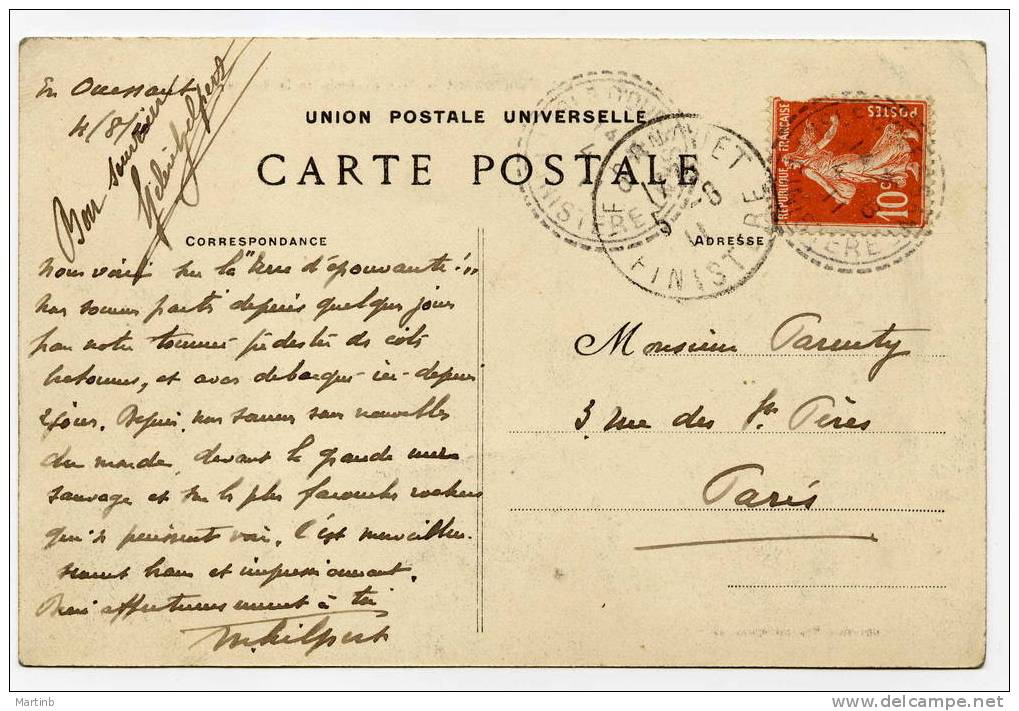 En Ouessant
4/8/
Bon souvenir
UNION POSTALE UNIVERSELLE
CARTE POSTALE
CORRESPONDANCE
ADRESSE
POSTES
RÉPUBLIQUE FRANÇAISE
10c
LE CONQUET
5 -8
11
FINISTÈRE
FINISTÈRE
Nous voici sur la "terre d'épouvante!"
nos sommes parti depuis quelques jours
notre tournée pédestre de
bretonnes, et avons debarqué ici depuis
2 jours. Depuis, nos sommes sans nouvelles
du monde, devant la grande mer
sauvage et sur les plus farouches rochers
qui se puissent voir. C'est merveilleu-
sement beau et impressionnant.
Bien affectueusement à toi
M. Hilpert
Monsieur Parmenty
3, rue des Sts Pères
Paris
Martinb
www.delcampe.net